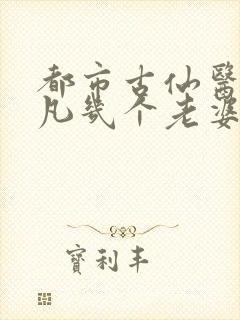 都市古仙醫
凡幾个老婆
寶利丰